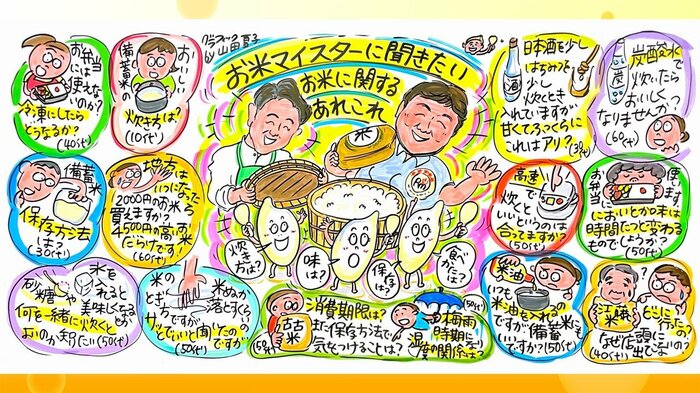 グラフィック
by 山田夏子
お米マイスターに聞きたい
お米に関する
あれこれ
米
炊き方は?
味は?
保存は?
食べ方は?
お弁当
には
使えな
いのか?
冷凍にしたら
どうなるか?
(40代)
おいしい
備蓄米の
炊き方は?
(10代)
備蓄米
保存方法
は?
(30代)
地方は
いつになったら
2000円のお米が
買えますか?
4500円の高いお米
だらけです!
(60代)
砂糖や
氷を
入れると
美味しくなるとか
何を一緒に炊くと
よいのか知りたい(50代)
米の
とぎ
方ですが
米ぬか
落とすくらい
サッとでいいと聞いたの
ですが
(50代)
古古米
消費期限は?
また保存方法で
気をつけることは?
(50代)
梅雨
時期になり
湿度の関係は?
(50代)
日本酒を少し
はちみつを
少し
炊くとき
入れていますが
甘くてふっくらに
これはアリ?
酒
炭酸水で
炊いたら
おいしく
なりませんか?
(60代)
炭
高速
で
炊くと
いいというのは
合ってますか?
(50代)
お弁当に
使います
においとか味は
時間たつと変わる
ものでしょうか?
(50代)
米油
いつも
米油を入れるの
ですが備蓄米にも
いいですか?(50代)
どこに行ったの?
なぜ店頭に
出ないの?
(40代)